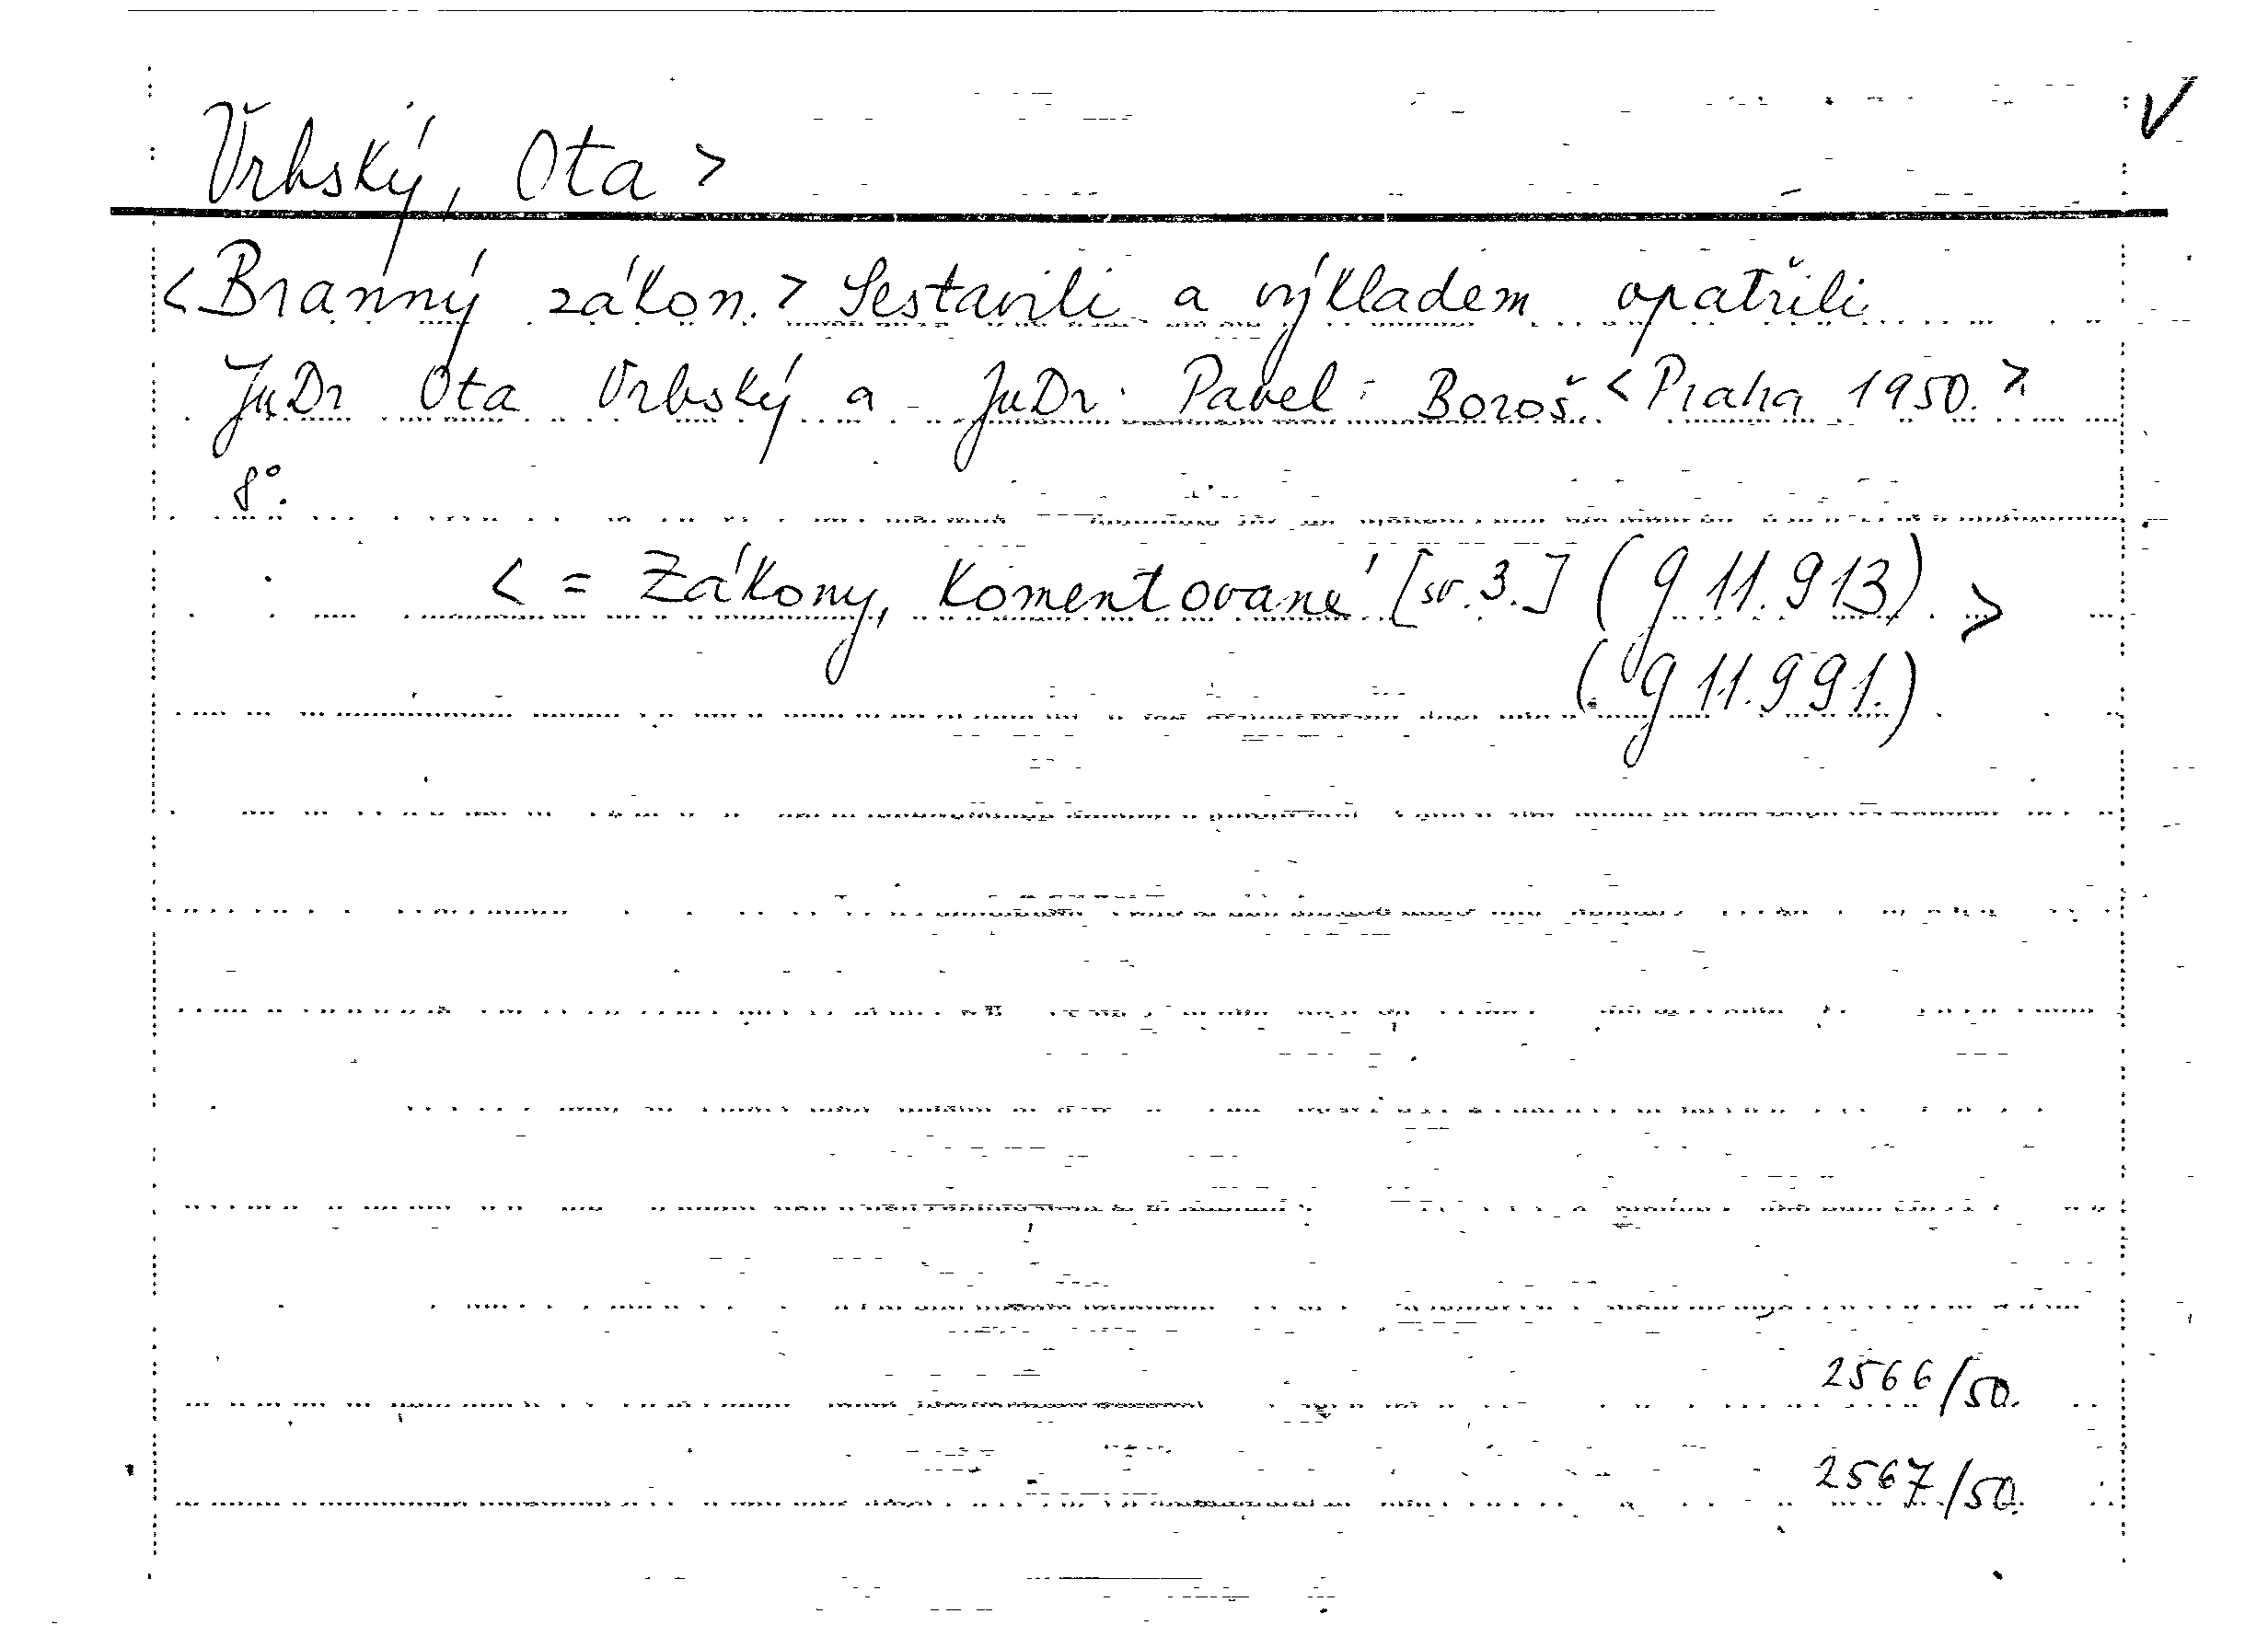 V
Vrbský, Ota >
<Branný zákon.> Sestavili a výkladem opatřili
JuDr Ota Vrbský a JuDr. Pavel Boroš. <Praha 1950.>
8°.
< = Zákony, Komentované [sv. 3.] (g 11.913) >
(g 11.991.)
2566/50.
2567/50.